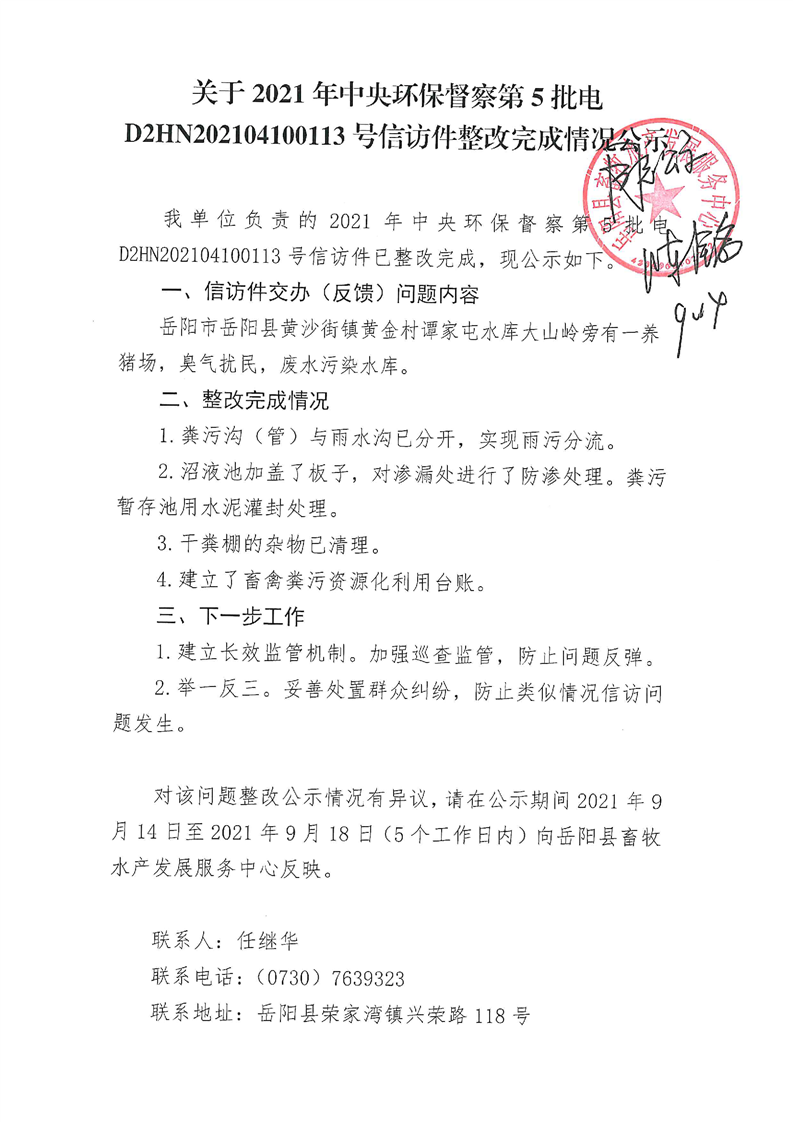 关于 2021 年中央环保督察第 5 批电
D2HN202104100113 号信访件整改完成情况公示
我单位负责的 2021 年中央环保督察第 5 批电
D2HN202104100113 号信访件已整改完成，现公示如下。
一、信访件交办（反馈）问题内容
岳阳市岳阳县黄沙街镇黄金村谭家屯水库大山岭旁有一养
猪场，臭气扰民，废水污染水库。
二、整改完成情况
1.粪污沟（管）与雨水沟已分开，实现雨污分流。
2.沼液池加盖了板子，对渗漏处进行了防渗处理。粪污
暂存池用水泥灌封处理。
3.干粪棚的杂物已清理。
4.建立了畜禽粪污资源化利用台账。
三、下一步工作
1.建立长效监管机制。加强巡查监管，防止问题反弹。
2.举一反三。妥善处置群众纠纷，防止类似情况信访问
题发生。
对该问题整改公示情况有异议，请在公示期间 2021 年 9
月 14 日至 2021 年 9 月 18 日（5 个工作日内）向岳阳县畜牧
水产发展服务中心反映。
联系人：任继华
联系电话：（0730）7639323
联系地址：岳阳县荣家湾镇兴荣路 118 号
岳阳县畜牧水产发展服务中心